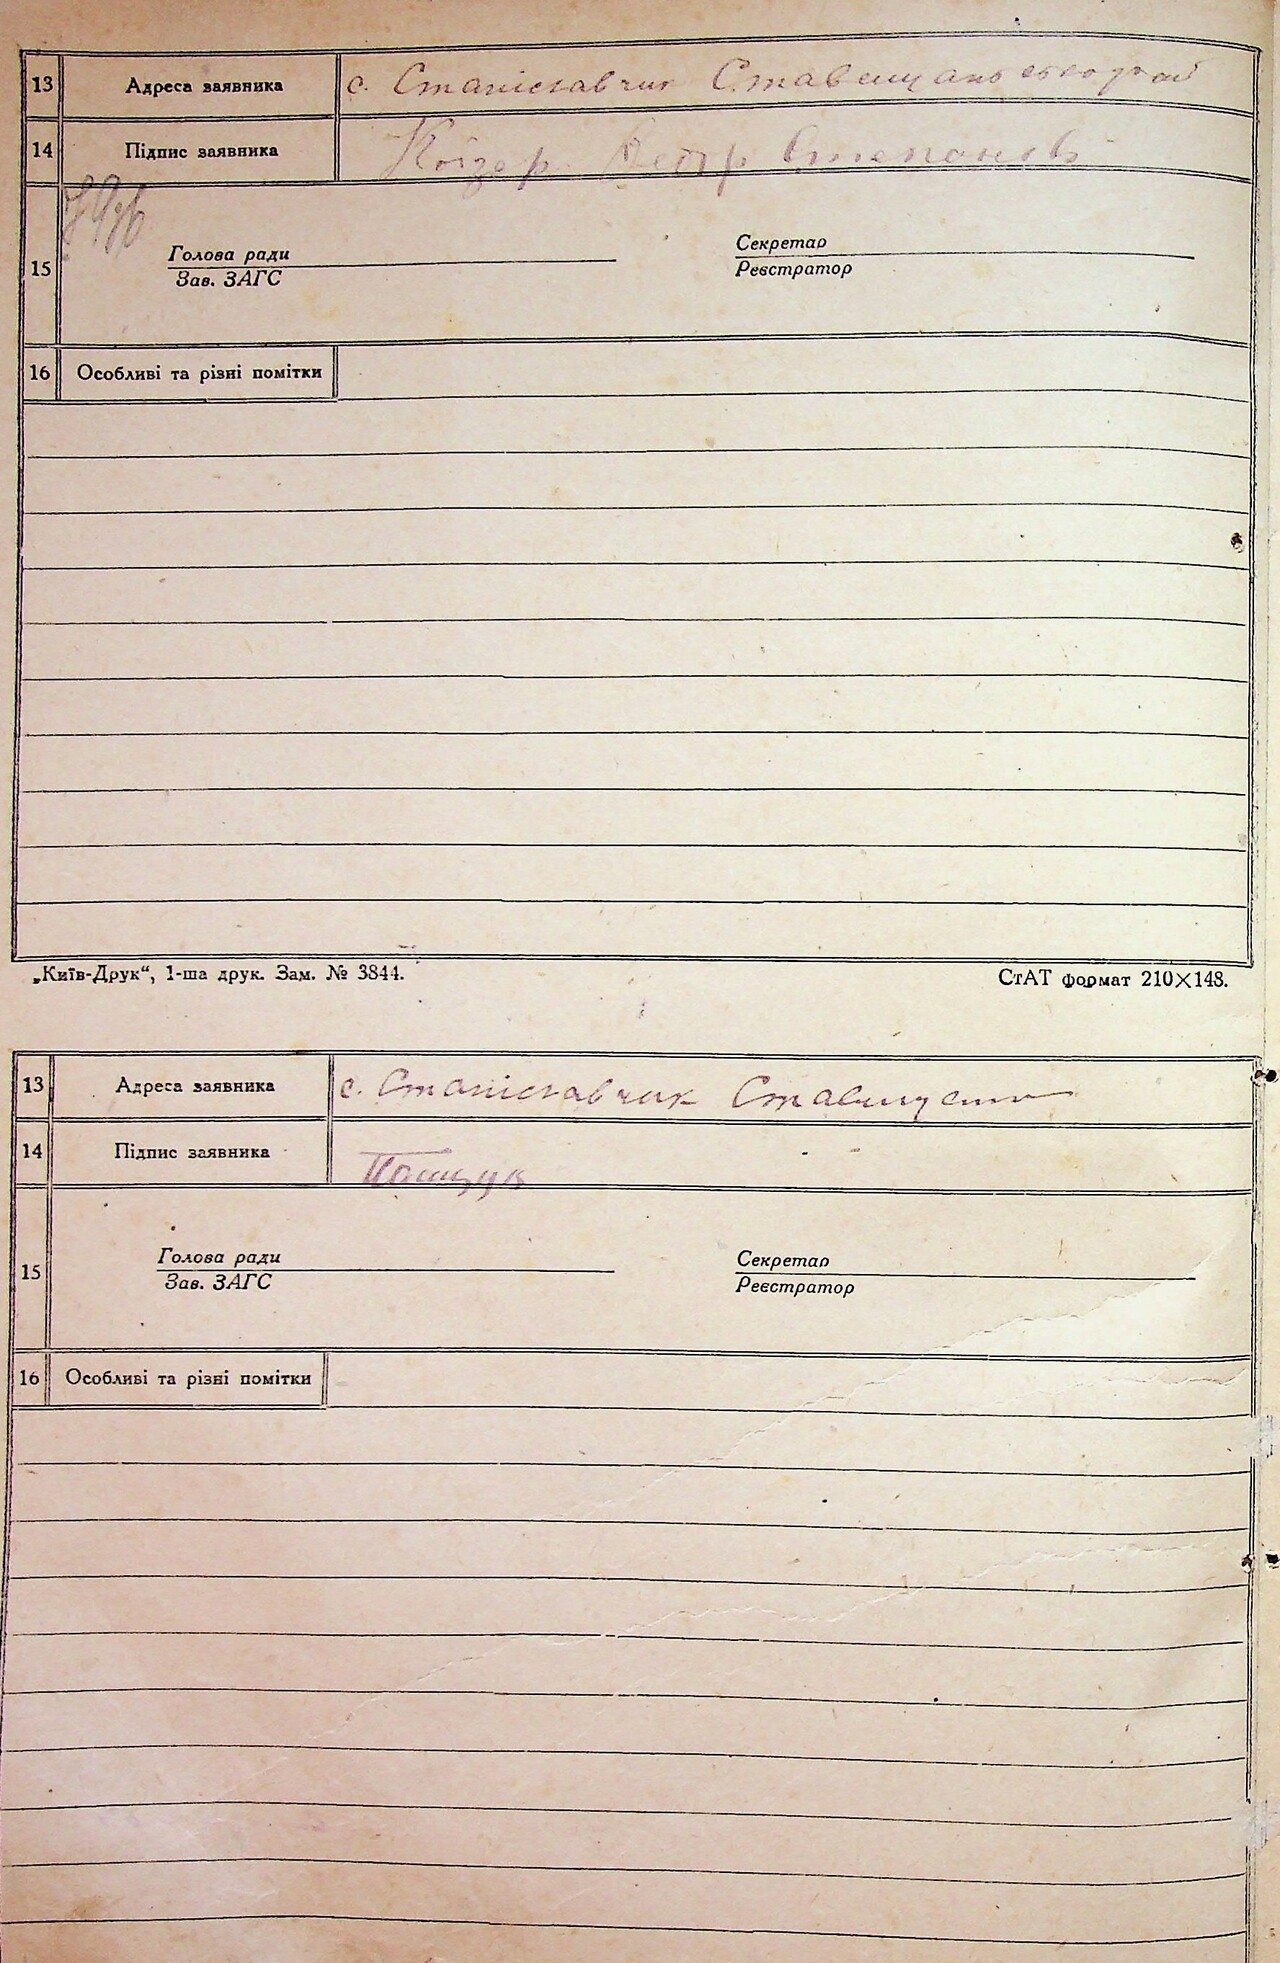 13 Адреса заявника с. Станіславчик Ставищанського рай
14 Підпис заявника Степанові
15 Голова ради Секретар
Зав. ЗАГС Реєстратор
16 Особливі та різні помітки
„Київ-Друк“, 1-ша друк. Зам. № 3844. СтАТ формат 210×148.
13 Адреса заявника с. Станіславчик
14 Підпис заявника
15 Голова ради Секретар
Зав. ЗАГС Реєстратор
16 Особливі та різні помітки